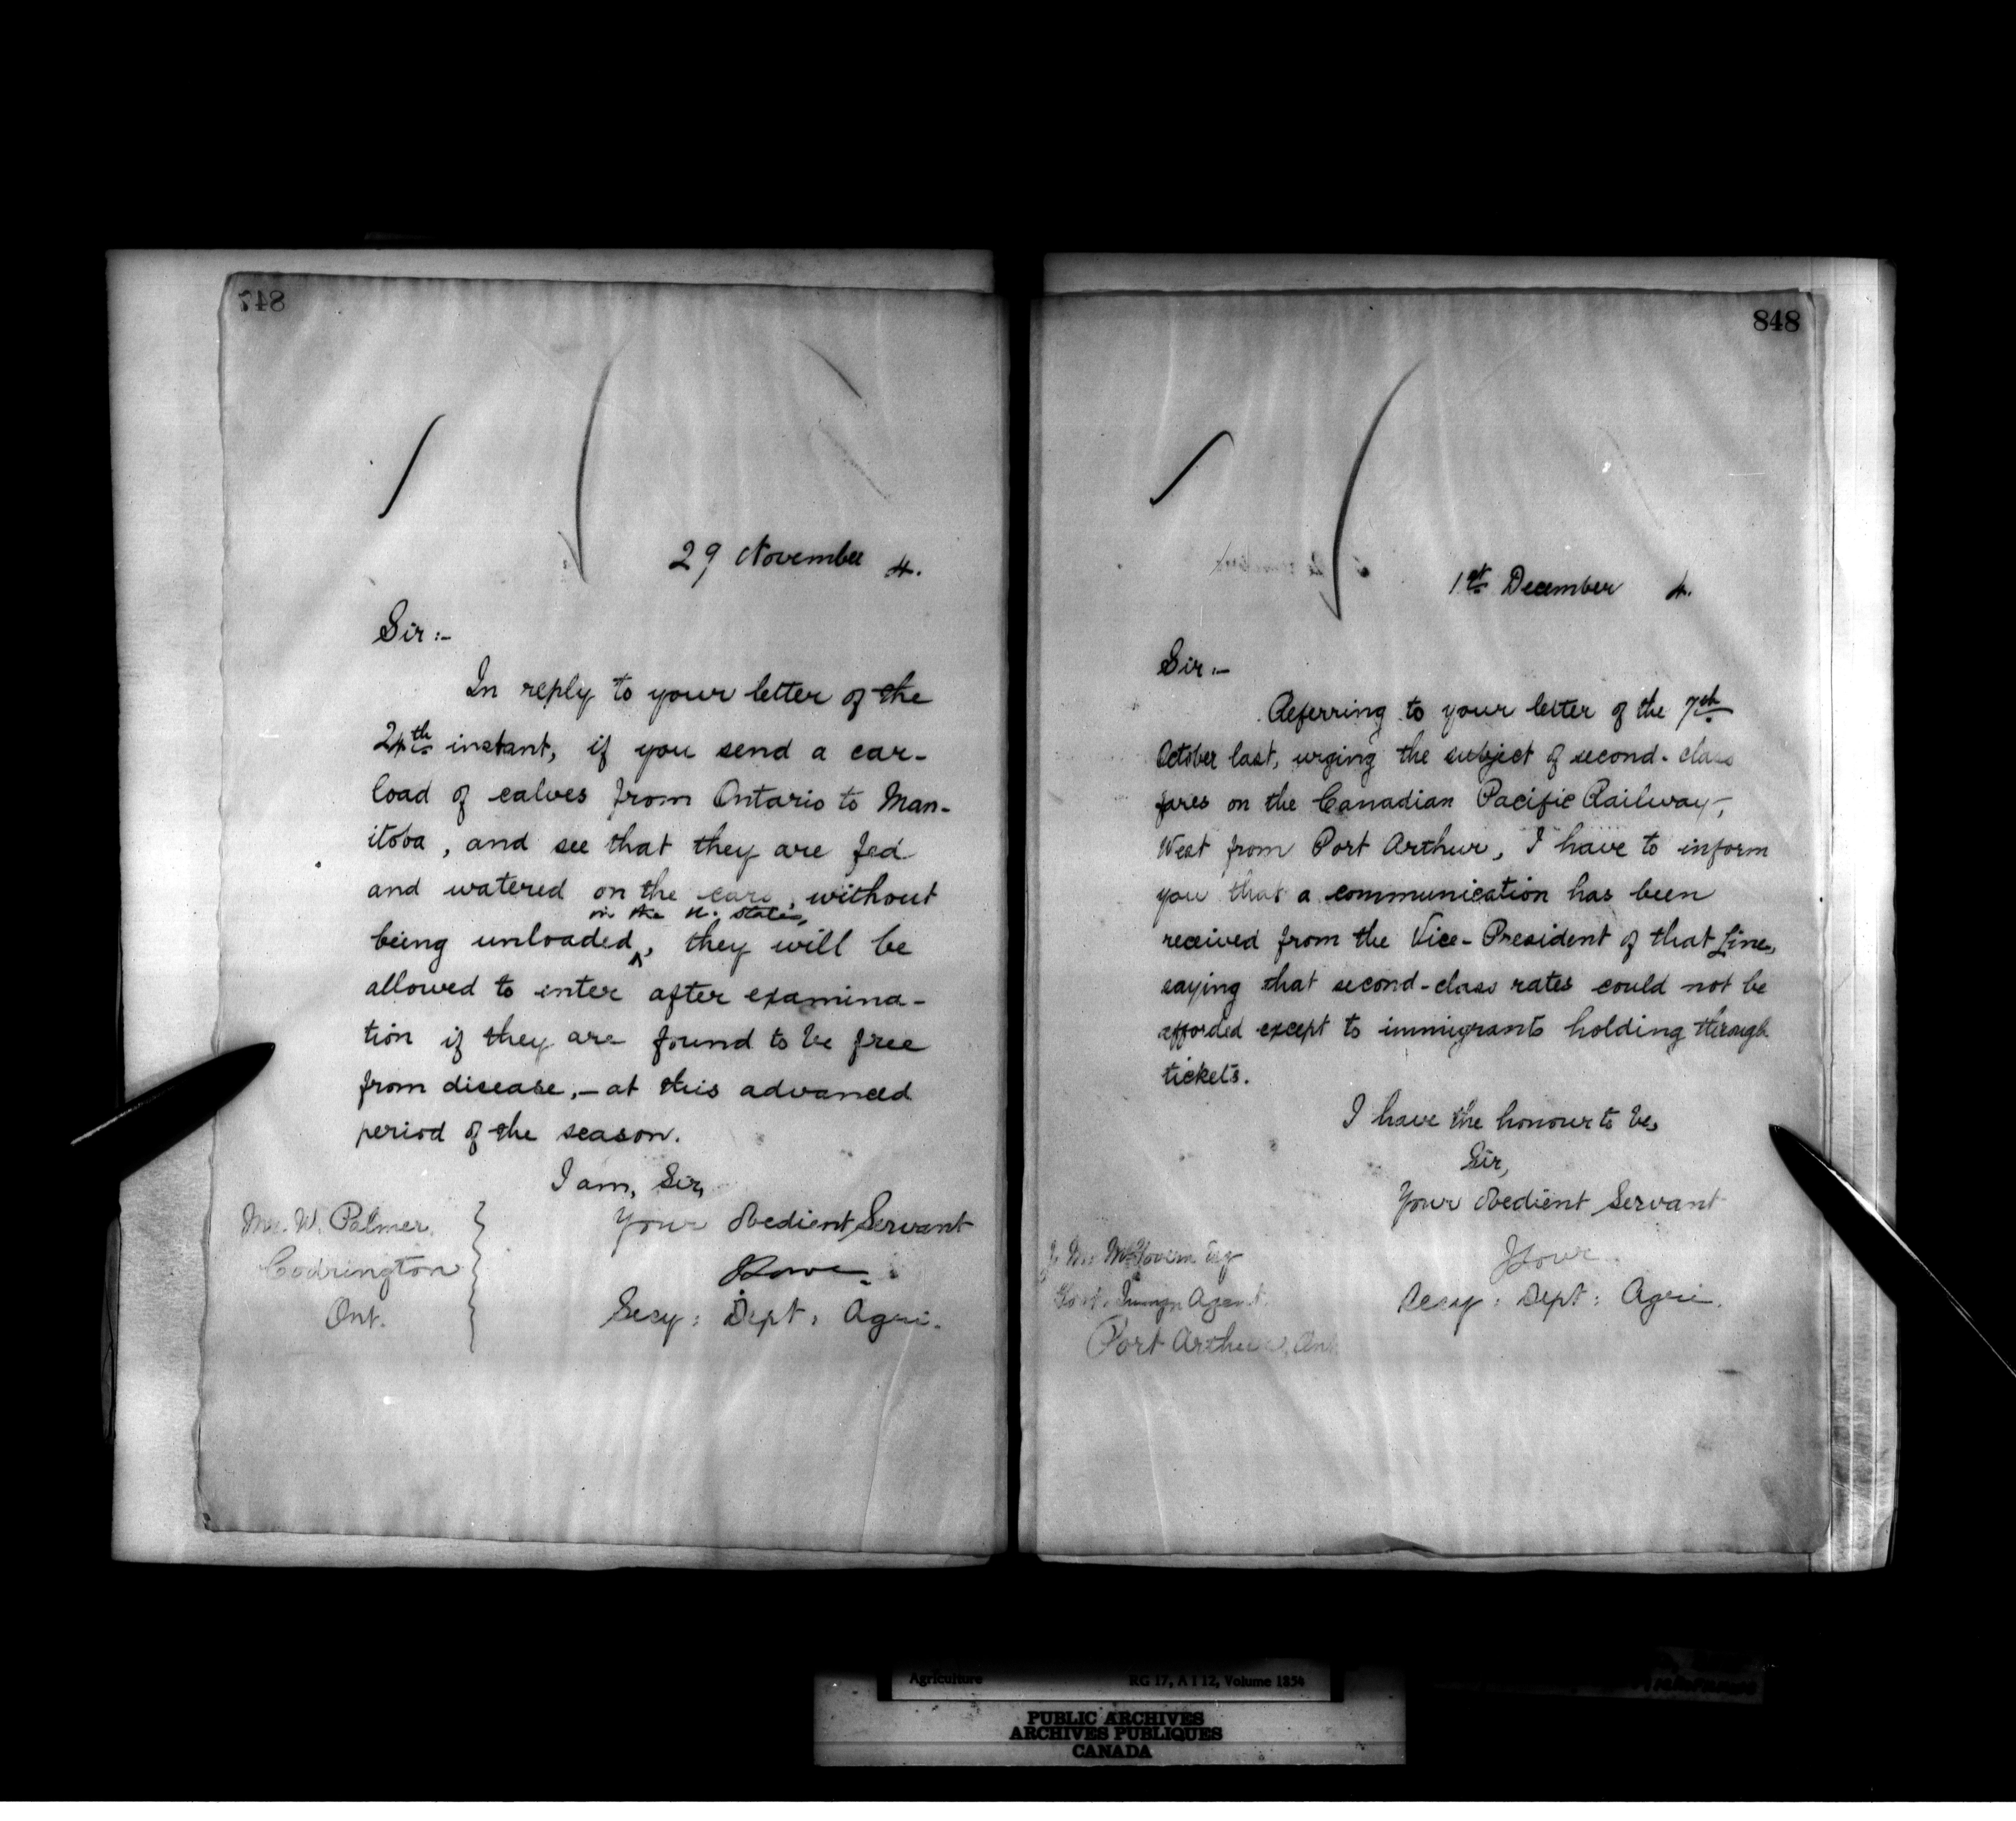 847
29 November 4.
Sir:-
In reply to your letter of the
24th instant, if you send a car-
load of calves from Ontario to Man-
itoba, and see that they are fed
and watered on the cars, without
in the U. States,
being unloaded, they will be
allowed to enter after examina-
tion if they are found to be free
from disease,- at this advanced
period of the season.
I am, Sir,
Your Obedient Servant
Mr. W. Palmer
Codrington
Ont.
Secy: Dept: Agri.
848
1st December 4.
Sir:-
Referring to your letter of the 7th
October last, urging the subject of second-class
fares on the Canadian Pacific Railway,
West from Port Arthur, I have to inform
you that a communication has been
received from the Vice-President of that Line,
saying that second-class rates could not be
afforded except to immigrants holding through
tickets.
I have the honour to be,
Sir,
Your Obedient Servant
JLowe
Secy: Dept: Agri.
McGovern Esq
Govt. Immgn Agent.
Port Arthur, Ont.
Agriculture RG 17, A I 12, Volume 1854
PUBLIC ARCHIVES
ARCHIVES PUBLIQUES
CANADA